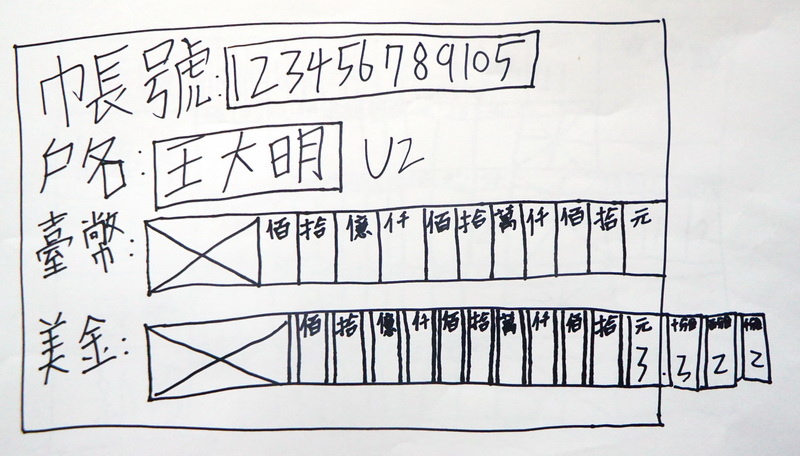 帳號:123456789105
戶名:王大明 U2
臺幣: 佰 拾 億 仟 佰 拾 萬 仟 佰 拾 元
美金: 佰 拾 億 仟 佰 拾 萬 仟 佰 拾 元
3.322